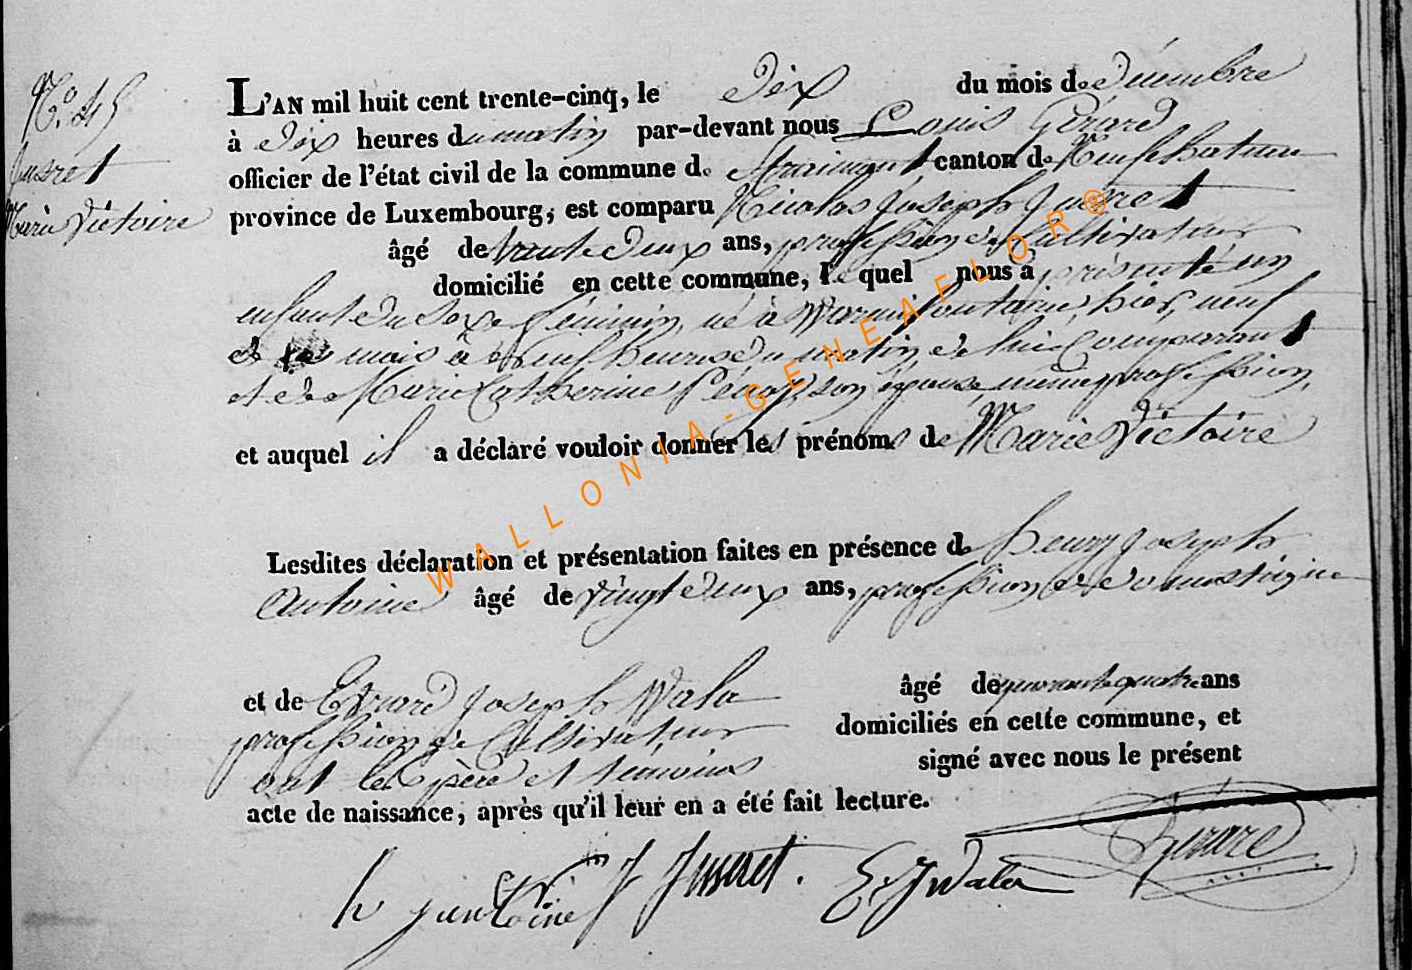 N.o 45
Jusret
Marie Victoire
L'AN mil huit cent trente-cinq, le Dix du mois de Décembre
à Dix heures du matin par-devant nous Louis Gérard
officier de l'état civil de la commune de Straimont, canton de Neufchateau
province de Luxembourg, est comparu Nicolas Joseph Jusret
âgé de trente Deux ans, profession de Cultivateur
domicilié en cette commune, le quel nous a présenté un
enfant du sexe féminin, né à Warmifontaine, hier, neuf
de mois à neuf heures du matin de lui Comparant
et de Marie Catherine son épouse, même profession,
et auquel il a déclaré vouloir donner les prénoms de Marie Victoire
Lesdites déclaration et présentation faites en présence de henry Joseph
Antoine âgé de vingt deux ans, profession de domestique
et de Evrard Joseph Wala âgé de quarante quatre ans
profession de Cultivateur domiciliés en cette commune, et
ont les père et temoins signé avec nous le présent
acte de naissance, après qu'il leur en a été fait lecture.
h j antoine N J Jusseret. E J Wala Gérard
WALLONIA-GENEAFLOR®